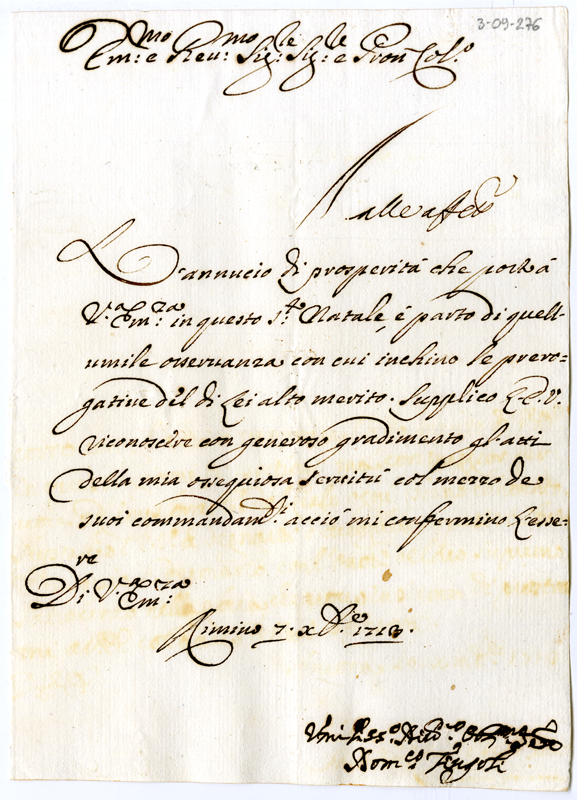 3-09-276
Em:mo e Reu:mo Sig:re Sig:re e Pron Col:o
alle affet
L'annucio di prosperità che porto à
V.a Em:za in questo S.to Natale, é parto di quell-
umile osseruanza con cui inchino le prero=
gatiue del di Lei alto merito. Supplico L.E.V.
riconoscere con generoso gradimento gl'atti
della mia ossequiosa seruitù col mezzo de
suoi commandam.ti acciò mi confermino L'esse=
re
Di V.a Em:za
Rimino 7. xbre 1713.
Vmiliss:o